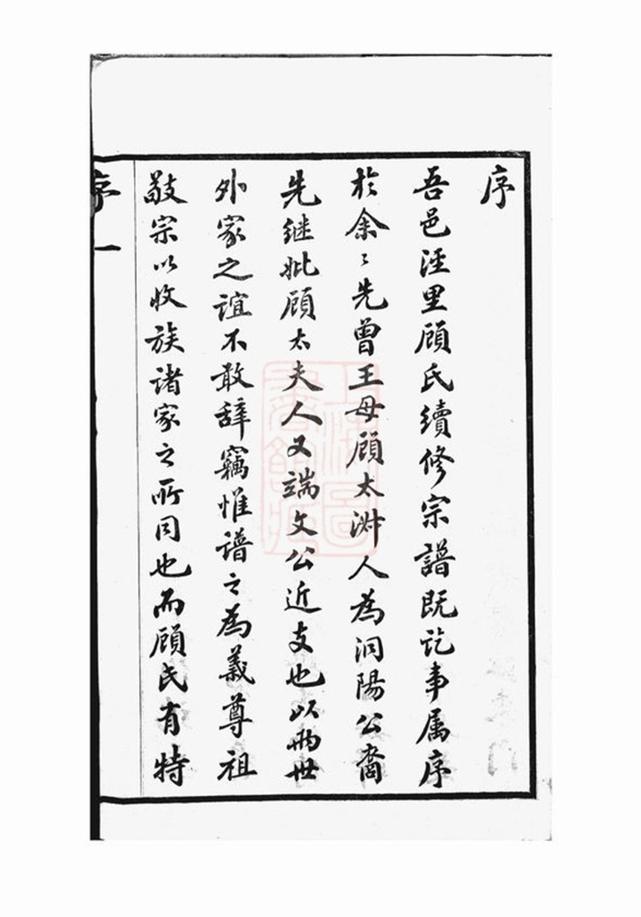 序
吾邑涇里顧氏續修宗譜既訖事属序
於余〻先曾王母顧太淑人為洞陽公裔
先继妣顧太夫人又端文公近支也以兩世
外家之誼不敢辞竊惟譜之為義尊祖
敬宗以收族諸家之所同也而顧氏有特
序一